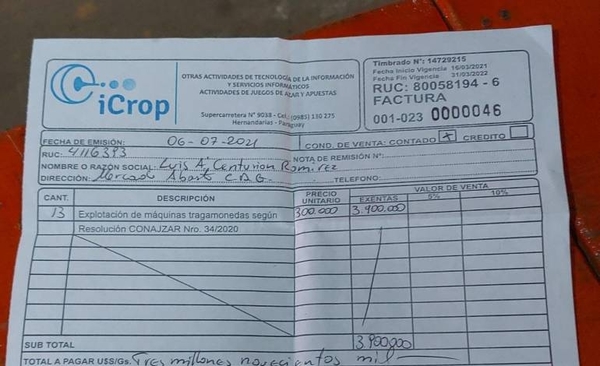 iCrop
OTRAS ACTIVIDADES DE TECNOLOGÍA DE LA INFORMACIÓN
Y SERVICIOS INFORMÁTICOS
ACTIVIDADES DE JUEGOS DE AZAR Y APUESTAS
Supercarretera N° 9038 - Cel.: (0985) 110 275
Hernandarias - Paraguay
Timbrado N°: 14729215
Fecha Inicio Vigencia 16/03/2021
Fecha Fin Vigencia 31/03/2022
RUC: 80058194 - 6
FACTURA
001-023 0000046
FECHA DE EMISIÓN: 06-07-2021 COND. DE VENTA: CONTADO x CREDITO
RUC: 4116393 NOTA DE REMISIÓN N°:
NOMBRE O RAZÓN SOCIAL: Luis A. Centurion Ramirez
DIRECCIÓN: Mercado Abasto C.D.E. TELEFONO:
CANT. DESCRIPCIÓN PRECIO UNITARIO VALOR DE VENTA
EXENTAS 5% 10%
13 Explotación de máquinas tragamonedas según 300.000 3.900.000
Resolución CONAJZAR Nro. 34/2020
SUB TOTAL 3.900.000
TOTAL A PAGAR U$S/Gs. Tres millones novecientos mil